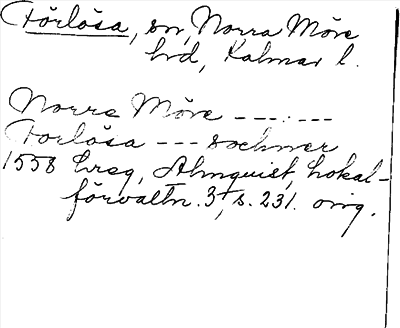 Förlösa, sn, Norra Möre
hd, Kalmar l.
Norra Möre ------
Forlösa --- sochner
1558 Lrsg, Almquist, Lokal-
förvaltn. 3, s. 231. orig.